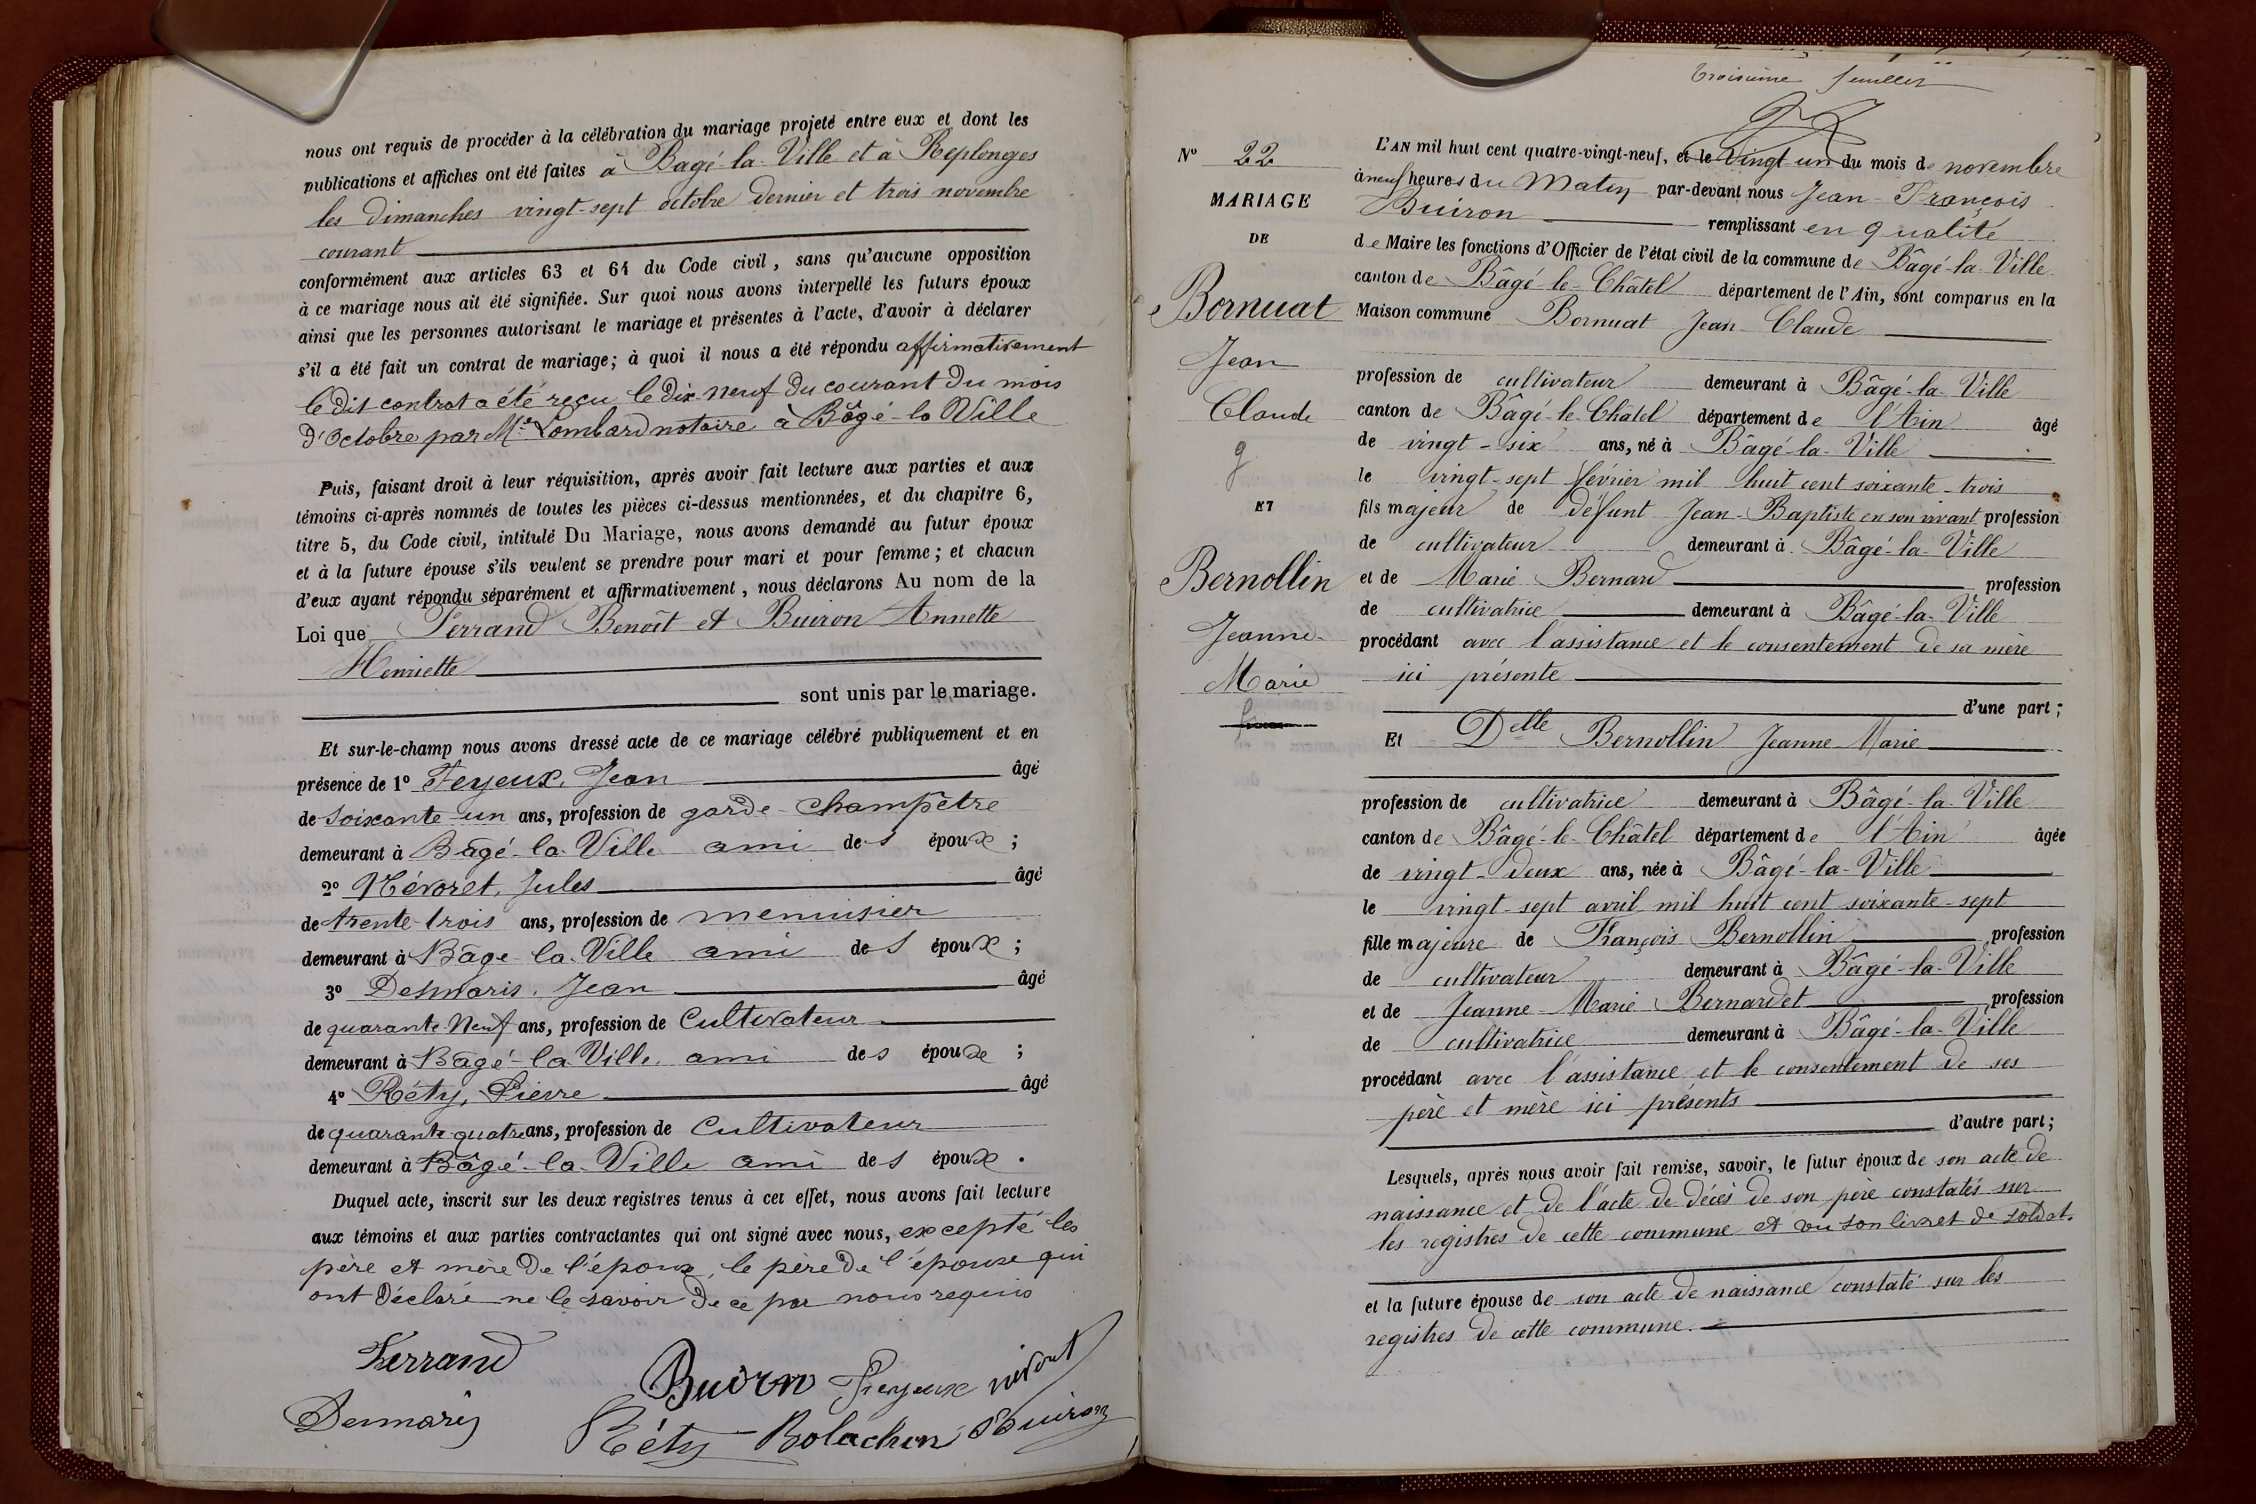 nous ont requis de procéder à la célébration du mariage projeté entre eux et dont les
publications et affiches ont été faites à Bagé-la-Ville et à Replonges
les dimanches vingt-sept octobre dernier et trois novembre
courant
conformément aux articles 63 et 64 du Code civil, sans qu'aucune opposition
à ce mariage nous ait été signifiée. Sur quoi nous avons interpellé les futurs époux
ainsi que les personnes autorisant le mariage et présentes à l'acte, d'avoir à déclarer
s'il a été fait un contrat de mariage; à quoi il nous a été répondu affirmativement
le dit contrat a été reçu le dix neuf du courant du mois
d'Octobre par Me Lombard notaire à Bâgé-la Ville
Puis, faisant droit à leur réquisition, après avoir fait lecture aux parties et aux
témoins ci-après nommés de toutes les pièces ci-dessus mentionnées, et du chapitre 6,
titre 5, du Code civil, intitulé Du Mariage, nous avons demandé au futur époux
et à la future épouse s'ils veulent se prendre pour mari et pour femme; et chacun
d'eux ayant répondu séparément et affirmativement, nous déclarons Au nom de la
Loi que Ferrand Benoît et Buiron Annette
Henriette
sont unis par le mariage.
Et sur-le-champ nous avons dressé acte de ce mariage célébré publiquement et en
présence de 1º Feyeux, Jean âgé
de soixante-un ans, profession de garde-champêtre
demeurant à Bâgé-la-Ville ami des époux;
2º Névoret, Jules âgé
de trente-trois ans, profession de menuisier
demeurant à Bâge-la-Ville ami des époux;
3º Desmaris, Jean âgé
de quarante-Neuf ans, profession de Cultivateur
demeurant à Bâgé-la Ville ami des épouse;
4º Réty, Pierre âgé
de quarante quatre ans, profession de Cultivateur
demeurant à Bâgé-la-Ville ami des époux.
Duquel acte, inscrit sur les deux registres tenus à cet effet, nous avons fait lecture
aux témoins et aux parties contractantes qui ont signé avec nous, excepté les
père et mère de l'époux, le père de l'épouse qui
ont déclaré ne le savoir de ce par nous requis
Ferrand
Buiron Feyeux
Desmaris
Réty Bolachon Buiron
Troisième feuillet
Nº 22
MARIAGE
DE
Bornuat
Jean
Claude
g
ET
Bernollin
Jeanne-
Marie
L'AN mil huit cent quatre-vingt-neuf, et le vingt-un du mois de novembre
à neuf heures du Matin par-devant nous Jean-François
Buiron remplissant en qualité
de Maire les fonctions d'Officier de l'état civil de la commune de Bâgé-la-Ville
canton de Bâgé-le-Châtel département de l'Ain, sont comparus en la
Maison commune Bornuat Jean-Claude
profession de cultivateur demeurant à Bâgé-la-Ville
canton de Bâgé-le-Châtel département de l'Ain âgé
de vingt-six ans, né à Bâgé-la-Ville
le vingt-sept février mil huit cent soixante-trois
fils majeur de défunt Jean-Baptiste en son vivant profession
de cultivateur demeurant à Bâgé-la-Ville
et de Marie Bernard profession
de cultivatrice demeurant à Bâgé-la-Ville
procédant avec l'assistance et le consentement de sa mère
ici présente
d'une part;
Et Delle Bernollin Jeanne-Marie
profession de cultivatrice demeurant à Bâgé-la-Ville
canton de Bâgé-le-Châtel département de l'Ain âgée
de vingt-deux ans, née à Bâgé-la-Ville
le vingt-sept avril mil huit cent soixante-sept
fille majeure de François Bernollin profession
de cultivateur demeurant à Bâgé-la-Ville
et de Jeanne-Marie Bernardet profession
de cultivatrice demeurant à Bâgé-la-Ville
procédant avec l'assistance et le consentement de ses
père et mère ici présents
d'autre part;
Lesquels, après nous avoir fait remise, savoir, le futur époux de son acte de
naissance et de l'acte de décès de son père constatés sur
les registres de cette commune et vu son livret de soldat.
et la future épouse de son acte de naissance constaté sur les
registres de cette commune.